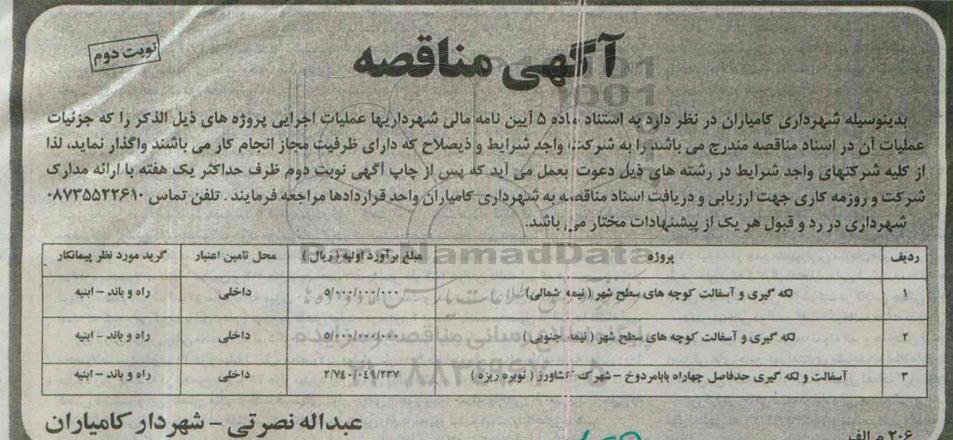 نوبت دوم
آگهی مناقصه
بدینوسیله شهرداری کامیاران در نظر دارد به استناد ماده ۵ آیین نامه مالی شهرداریها عملیات اجرایی پروژه های ذیل الذکر را که جزئیات
عملیات آن در اسناد مناقصه مندرج می باشد را به شرکت واجد شرایط و ذیصلاح که دارای ظرفیت مجاز انجام کار می باشند واگذار نماید، لذا
از کلیه شرکتهای واجد شرایط در رشته های ذیل دعوت بعمل می آید که پس از چاپ آگهی نوبت دوم ظرف حداکثر یک هفته با ارائه مدارک
شرکت و روزمه کاری جهت ارزیابی و دریافت اسناد مناقصه به شهرداری کامیاران واحد قراردادها مراجعه فرمایند. تلفن تماس ۰۸۷۳۵۵۲۲۶۱۰
شهرداری در رد و قبول هر یک از پیشنهادات مختار می باشد.
ردیف پروژه مبلغ برآورد اولیه (ریال) محل تامین اعتبار گرید مورد نظر پیمانکار
۱ لکه گیری و آسفالت کوچه های سطح شهر (نیمه شمالی) ۵/۰۰۰/۰۰۰/۰۰۰ داخلی راه و باند - ابنیه
۲ لکه گیری و آسفالت کوچه های سطح شهر (نیمه جنوبی) ۵/۰۰۰/۰۰۰/۰۰۰ داخلی راه و باند - ابنیه
۳ آسفالت و لکه گیری حدفاصل چهاراه بابامردوخ – شهرک کشاورز (توبره ریزه) ۲/۷۴۰/۰۴۹/۲۳۷ داخلی راه و باند - ابنیه
عبداله نصرتی – شهردار کامیاران
۲۰۶ م الف
ParsNamadData